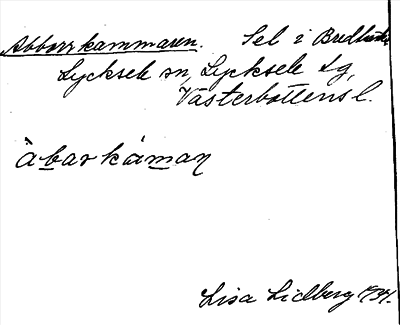 Abborrkammaren. Sel i
Lycksele sn, Lycksele lg,
Västerbottens l.
àbarkáman
Lisa Lidberg 1934.